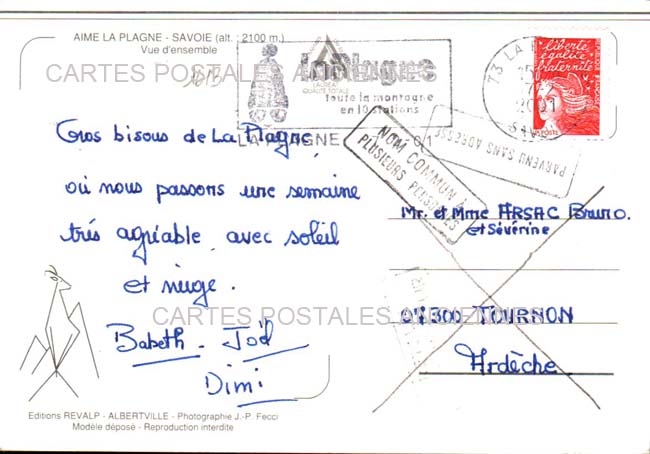 AIME LA PLAGNE - SAVOIE (alt. : 2100 m.)
Vue d'ensemble
CARTES POSTALES ANCIENNES
la Plagne
LAUREAT
QUALITE TOTALE
toute la montagne
en 10 stations
LA PLAGNE
01
73 LA
2001
SAVOIE
liberté
égalité
fraternité
LA POSTE
NOM COMMUN A
PLUSIEURS PERSONNES
PARVENU SANS ADRESSE
Gros bisous de La Plagne,
où nous passons une semaine
très agréable avec soleil
et neige.
Babeth - Joël
Dimi
Mr. et Mme ARSAC Bruno.
et Séverine
CARTES POSTALES ANCIENNES
07300 TOURNON
Ardèche
Editions REVALP - ALBERTVILLE - Photographie J.-P. Fecci
Modèle déposé - Reproduction interdite